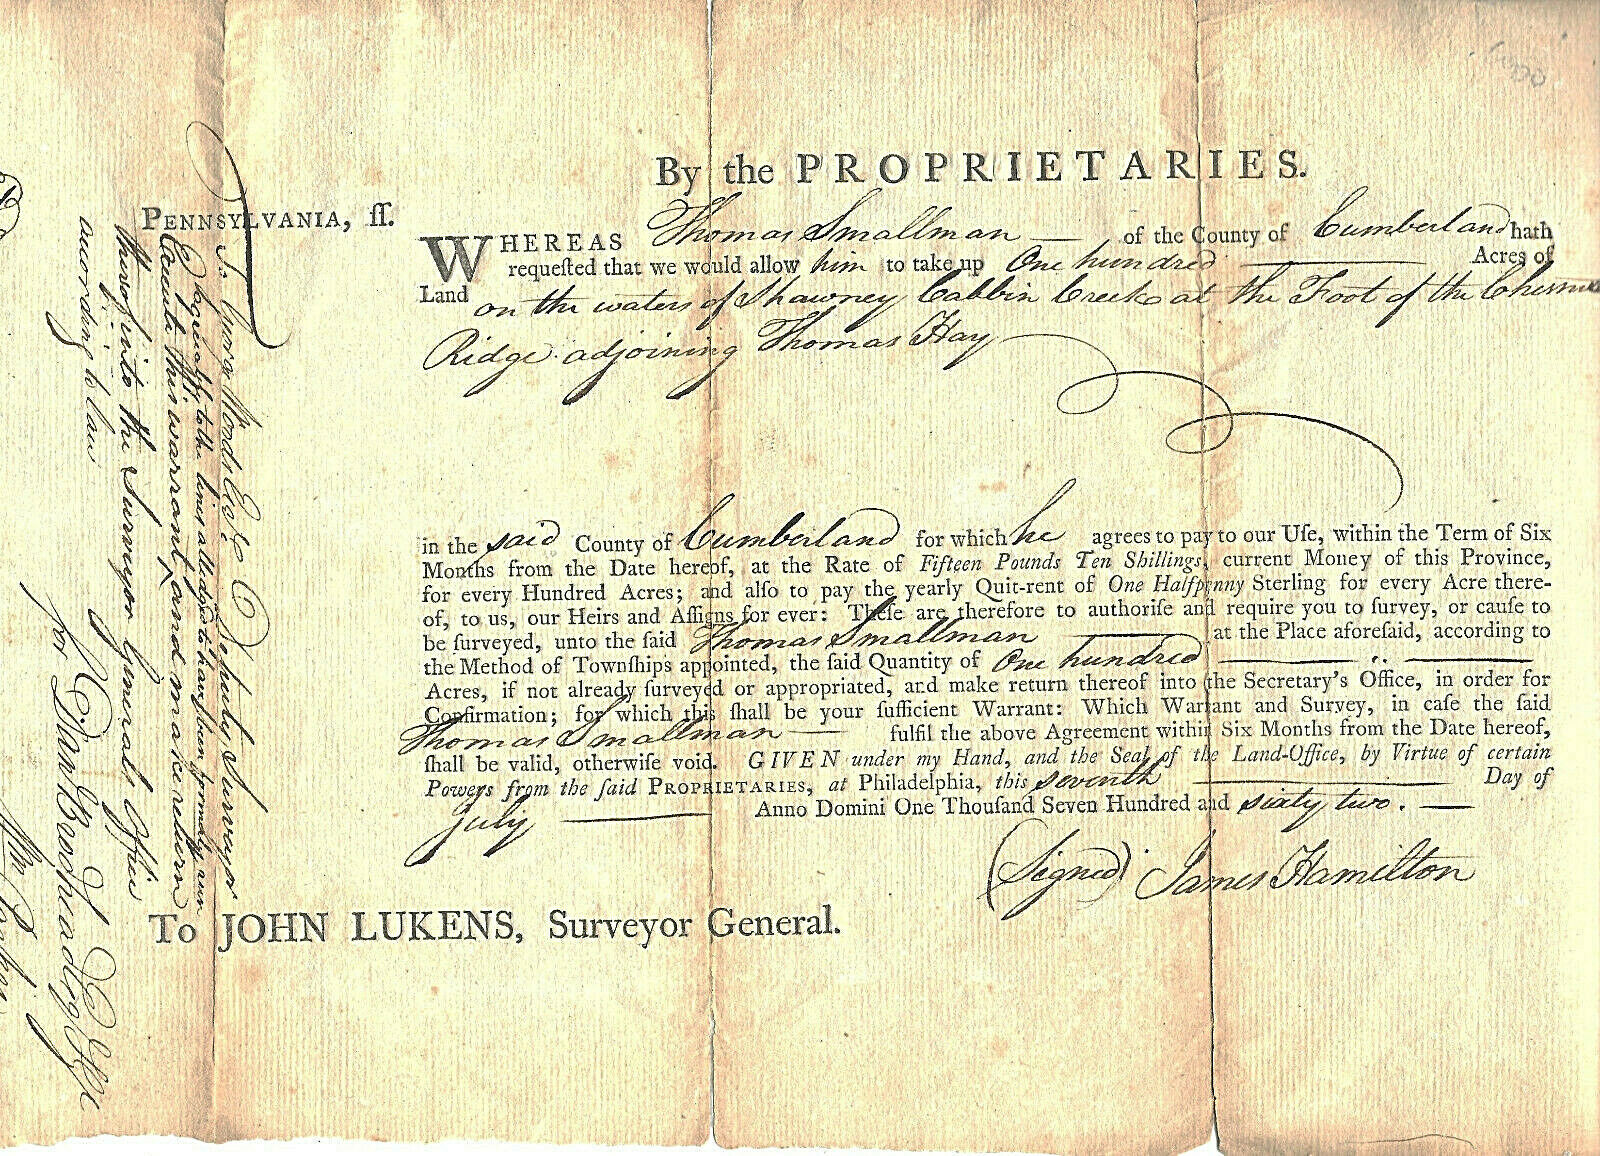 By the PROPRIETARIES.
PENNSYLVANIA, ſſ.
WHEREAS Thomas Smallman of the County of Cumberland hath
requeſted that we would allow him to take up One hundred Acres of
Land on the waters of Shawney Cabbin Creek at the Foot of the
Ridge adjoining Thomas Hay
in the said County of Cumberland for which he agrees to pay to our Uſe, within the Term of Six
Months from the Date hereof, at the Rate of Fifteen Pounds Ten Shillings, current Money of this Province,
for every Hundred Acres; and alſo to pay the yearly Quit-rent of One Halfpenny Sterling for every Acre there-
of, to us, our Heirs and Aſſigns for ever: Theſe are therefore to authoriſe and require you to ſurvey, or cauſe to
be ſurveyed, unto the ſaid Thomas Smallman at the Place aforeſaid, according to
the Method of Townſhips appointed, the ſaid Quantity of One hundred
Acres, if not already ſurveyed or appropriated, and make return thereof into the Secretary's Office, in order for
Confirmation; for which this ſhall be your ſufficient Warrant: Which Warrant and Survey, in caſe the ſaid
Thomas Smallman fulfil the above Agreement within Six Months from the Date hereof,
ſhall be valid, otherwiſe void. GIVEN under my Hand, and the Seal of the Land-Office, by Virtue of certain
Powers from the ſaid PROPRIETARIES, at Philadelphia, this seventh Day of
July Anno Domini One Thouſand Seven Hundred and sixty two.
(Signed) James Hamilton
To JOHN LUKENS, Surveyor General.
To George Woods Esqr. Deputy Surveyor
to the lines alledged to have been formerly run
Execute this warrant and make return
thereof into the Surveyor Generals Office
according to law
for Danl Brodhead Esqr